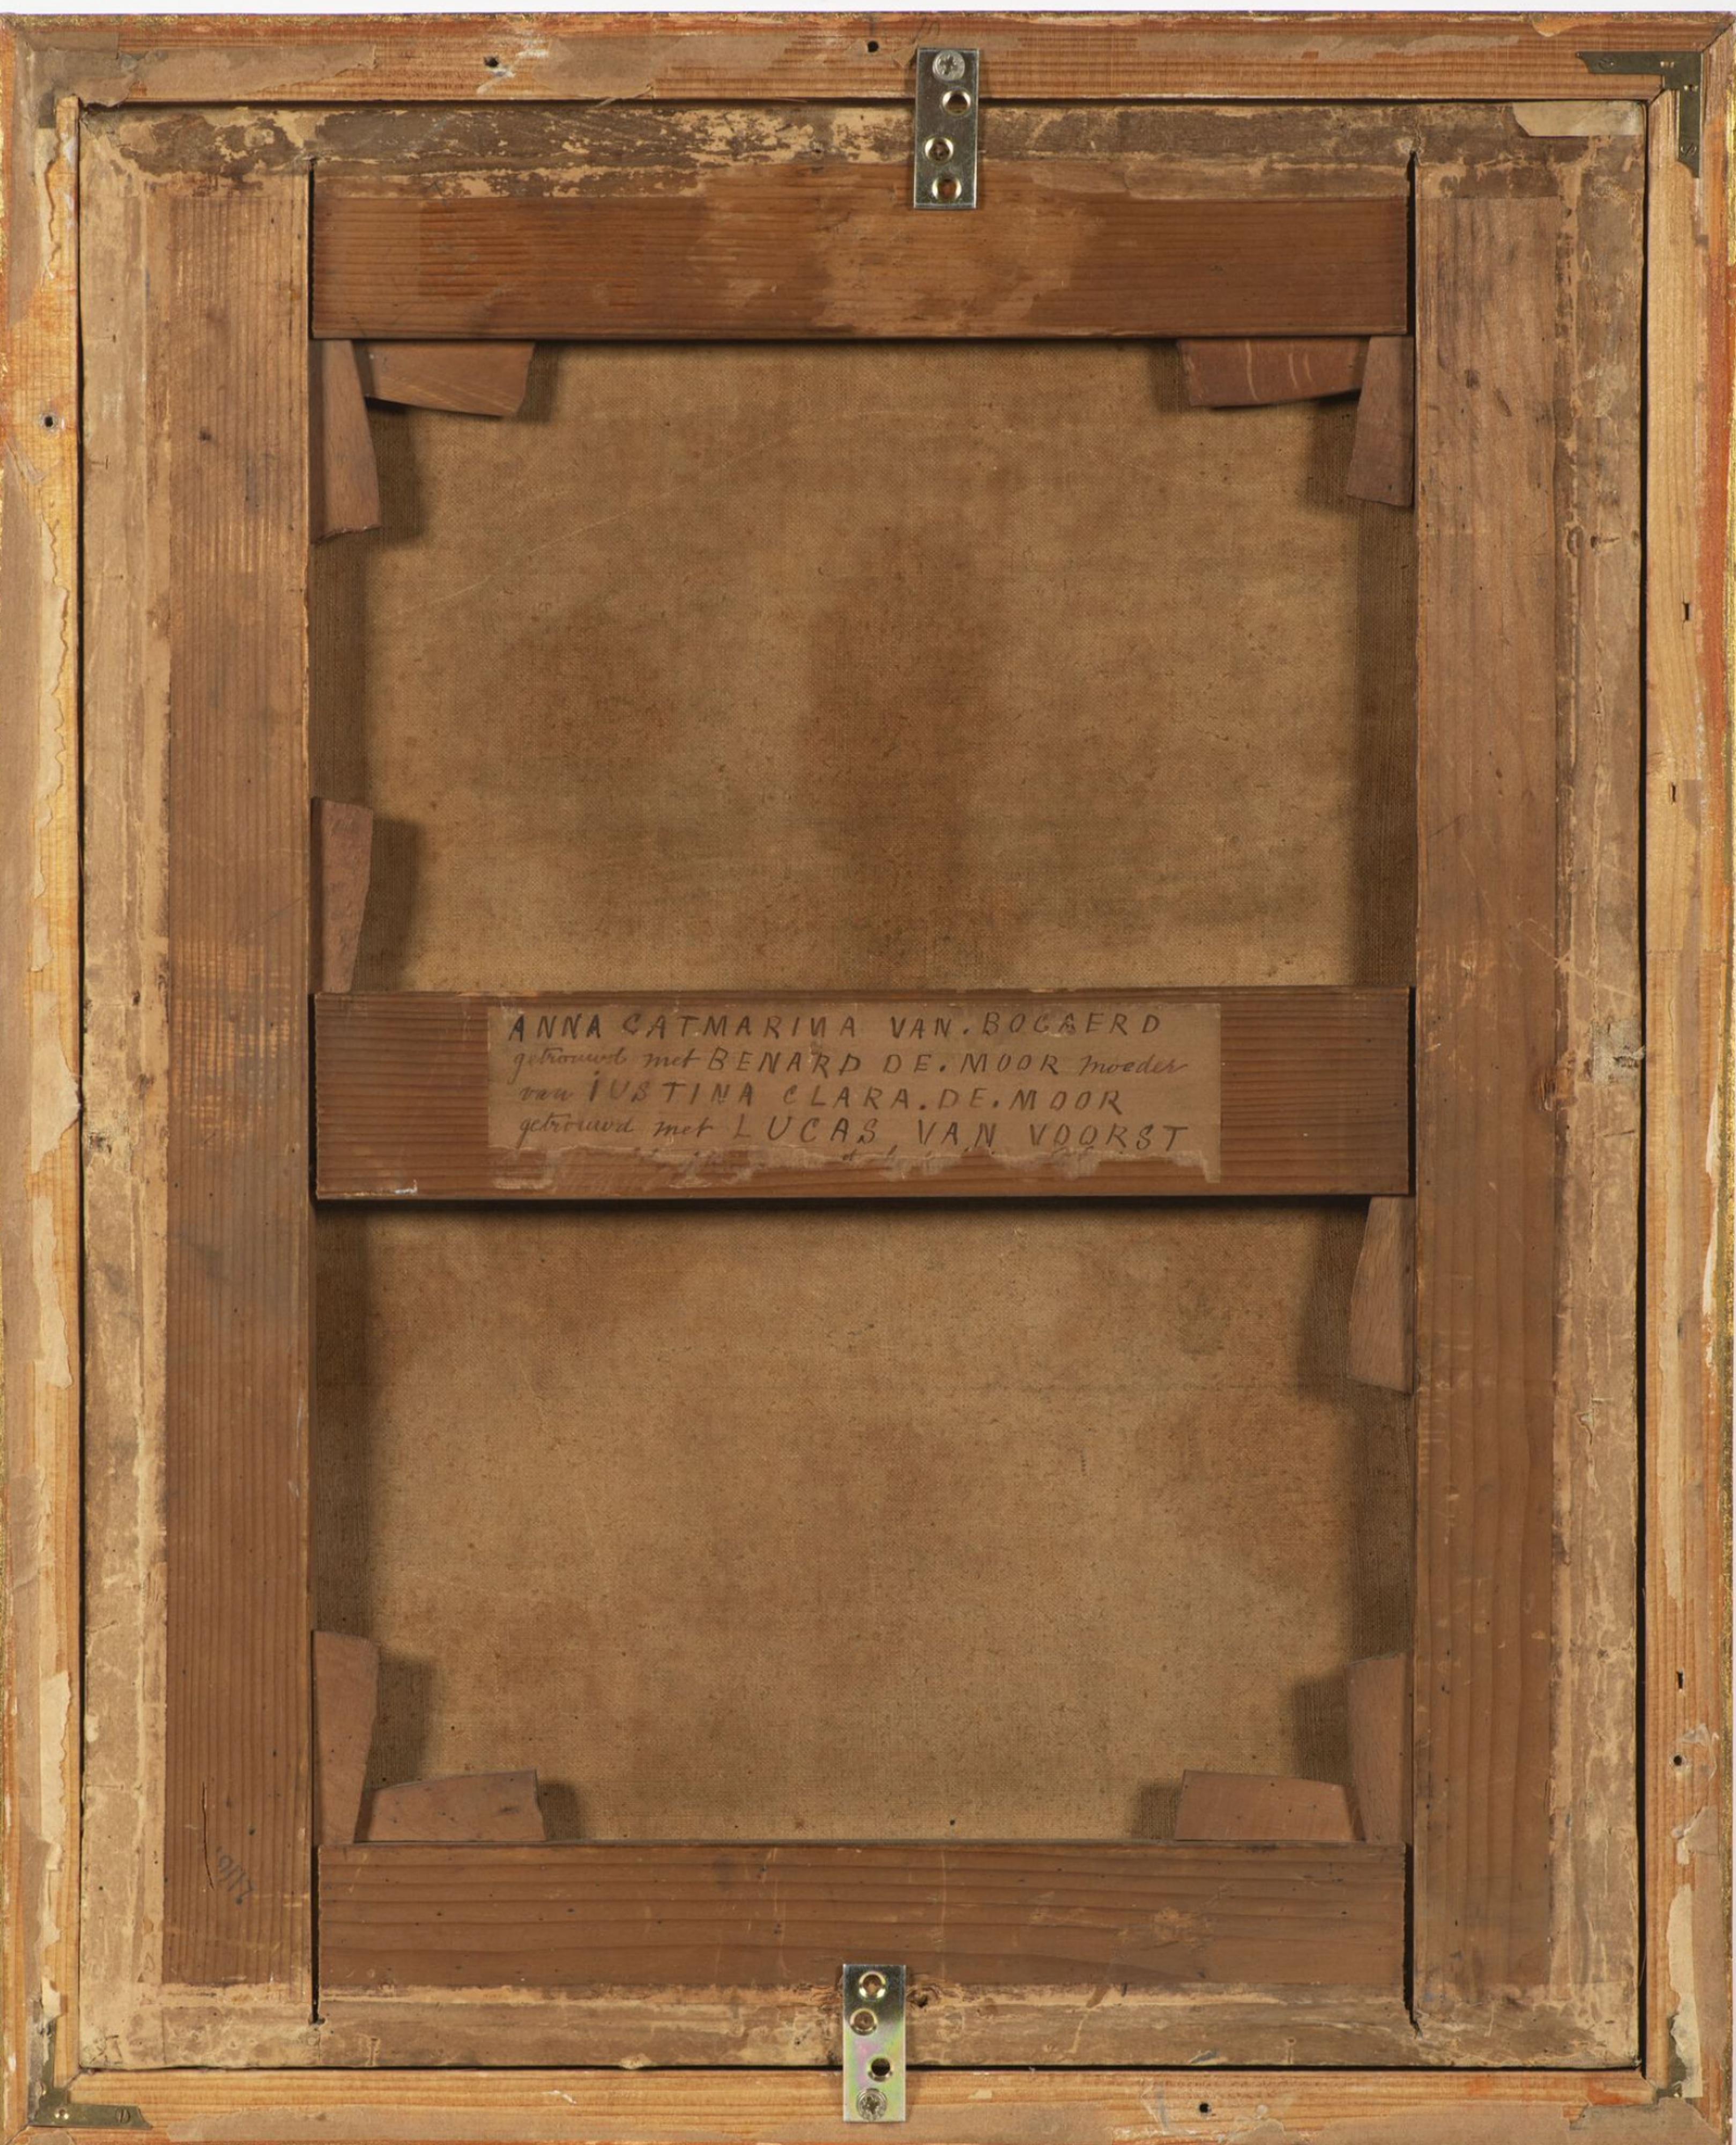 ANNA CATMARINA VAN. BOGAERD
getrouwd met BENARD DE. MOOR moeder
van IUSTINA CLARA. DE. MOOR
getrouwd met LUCAS VAN VOORST